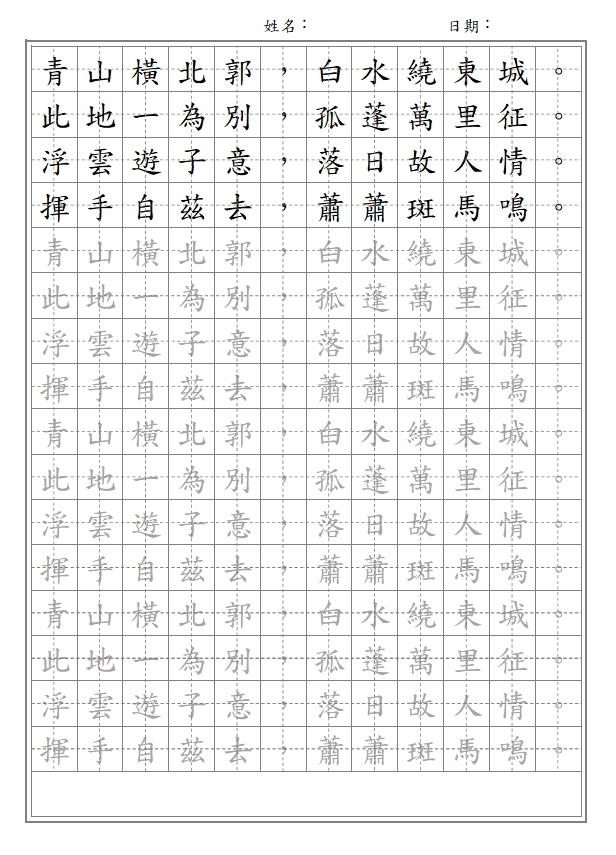 姓名： 日期：
青山橫北郭，白水繞東城。
此地一為別，孤蓬萬里征。
浮雲遊子意，落日故人情。
揮手自茲去，蕭蕭斑馬鳴。
青山橫北郭，白水繞東城。
此地一為別，孤蓬萬里征。
浮雲遊子意，落日故人情。
揮手自茲去，蕭蕭斑馬鳴。
青山橫北郭，白水繞東城。
此地一為別，孤蓬萬里征。
浮雲遊子意，落日故人情。
揮手自茲去，蕭蕭斑馬鳴。
青山橫北郭，白水繞東城。
此地一為別，孤蓬萬里征。
浮雲遊子意，落日故人情。
揮手自茲去，蕭蕭斑馬鳴。